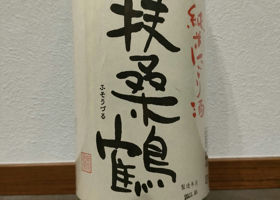 純米にごり酒
扶桑鶴
ふそうづる
製造年月